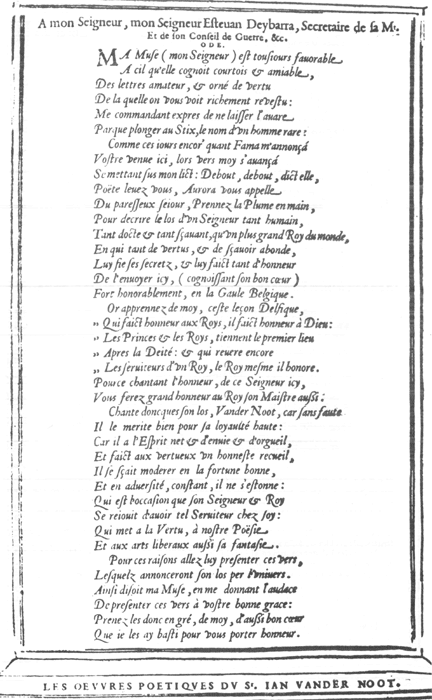 A mon Seigneur, mon Seigneur Esteuan Deybarra, Secretaire de sa Mᵗ.
Et de son Conseil de Guerre, &c.
ODE.
MA Muse (mon Seigneur) est tousiours fauorable
A cil qu'elle cognoit courtois & amiable,
Des lettres amateur, & orné de vertu
De la quelle on vous voit richement revestu:
Me commandant expres de ne laisser l'auare
Parque plonger au Stix, le nom d'vn homme rare:
Comme ces iours encor' quant Fama m'annonçá
Vostre venue ici, lors vers moy s'auançá
Se mettant sus mon lict: Debout, debout, dict elle,
Poëte leuez vous, Aurora vous appelle
Du paresseux seiour, Prennez la Plume en main,
Pour decrire le los d'vn Seigneur tant humain,
Tant docte & tant sçauant, qu'vn plus grand Roy du monde,
En qui tant de vertus, & de sçauoir abonde,
Luy fie ses secretz, & luy faict tant d'honneur
De l'enuoyer icy, (cognoissant son bon cœur)
Fort honorablement, en la Gaule Belgique.
Or apprennez de moy, ceste leçon Delfique,
„ Qui faict honneur aux Roys, il faict honneur à Dieu:
„ Les Princes & les Roys, tiennent le premier lieu
„ Apres la Deité: & qui reuere encore
„ Les seruiteurs d'vn Roy, le Roy mesme il honore.
Pource chantant l'honneur, de ce Seigneur icy,
Vous ferez grand honneur au Roy son Maistre aussi:
Chante doncques son los, Vander Noot, car sans faute
Il le merite bien pour sa loyaulté haute:
Car il a l'Esprit net & d'enuie & d'orgueil,
Et faict aux vertueux vn honneste recueil,
Il se sçait moderer en la fortune bonne,
Et en aduersité, constant, il ne s'estonne:
Qui est l'occasion que son Seigneur & Roy
Se reiouit d'auoir tel Seruiteur chez soy:
Qui met a la Vertu, à nostre Poësie
Et aux arts liberaux aussi sa fantasie.
Pour ces raisons allez luy presenter ces vers,
Lesquelz annonceront son los per l'vniuers.
Ainsi disoit ma Muse, en me donnant l'audace
De presenter ces vers à vostre bonne grace:
Prenez les donc en gré, de moy, d'aussi bon cœur
Que ie les ay basti pour vous porter honneur.
LES OEVVRES POETIQVES DV Sʳ. IAN VANDER NOOT.